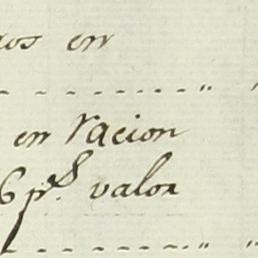 en
- - - - - - - - - - „ „
en racion
6 p.s valor
- - - - - - - - „ „